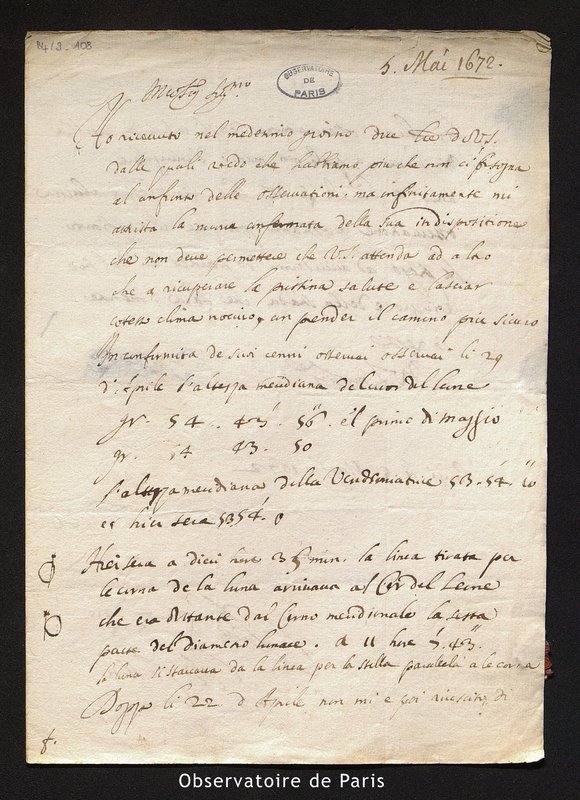 M/3-108
5. Mai 1672.
OBSERVATOIRE
DE
PARIS
Ho ricevuto nel medesimo giorno due tre d V.S.
dalle quali vedo che habbiamo piu che non ci bisogna
al confinto delle osservationi, ma infinitamente mi
attrista la nuova confermata della sua indispositione
che non deve permettere che V.S. attenda ad altro
che a ricuperare la pristina salute e lasciar
cotesto clima nocivo, en prender il camino piu sicuro
In conformita de suoi cenni osservai osservai li 29
d'Aprile l'altezza meridiana del cuor del Leone
gr. 54.. 43' 56" e'l primo di Maggio
gr. 54 43. 50
l'altezza meridiana della Vendemiatrice 53. 54. 10
et hieri sera 53 54. 0
Hiersera a dieci hore 35 min. la linea tirata per
le corna de la luna arrivava al Cor del Leone
che era distante dal Corno meridionale la sesta
parte del diametro lunare. a 11 hore 5. 43"
la luna distaccava da la linea per la stella parallela a le corna
Doppo li 22 d Aprile non mi e poi riuscito di
f.
Observatoire de Paris